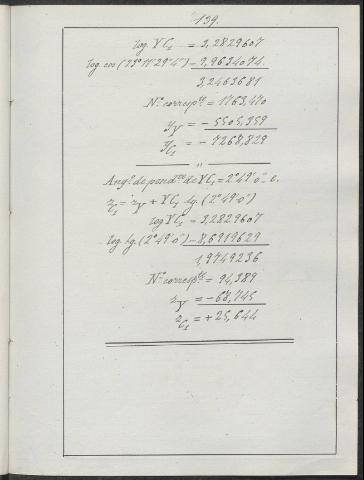 139.
log. YC₁ = 3,2829607
log. cos (23°11'29"4") = 9,9634074
3,2463681
N.º corresp.te = 1763,470
y Y = - 5505,359
y C₁ = - 7268,829
"
Ang.º de pend.te de YC₁ = 2°49'0" - e.
z C₁ = z Y + YC₁ tg. (2°49'0")
log YC₁ = 3,2829607
log. tg. (2°49'0") = 8,6919629
1,9749236
N.º corresp.te = 94,389
z Y = - 68,745
z C₁ = + 25,644